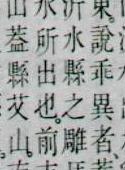 東。說乖異者、
沂水縣之雕
水所出也。前
山蓋縣艾山。